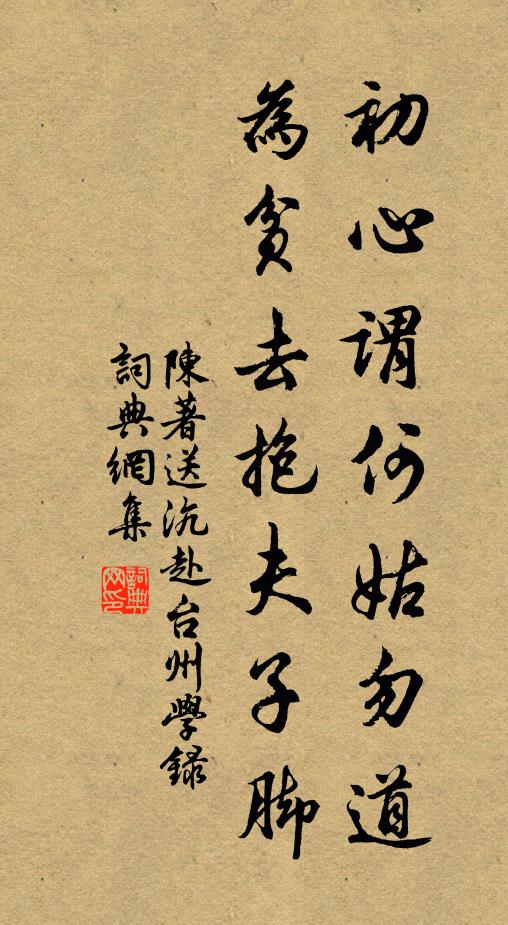 初心謂何姑勿道
為貧去抱夫子脚
陳著送沆赴台州學錄
詞典網集
詞典
网印